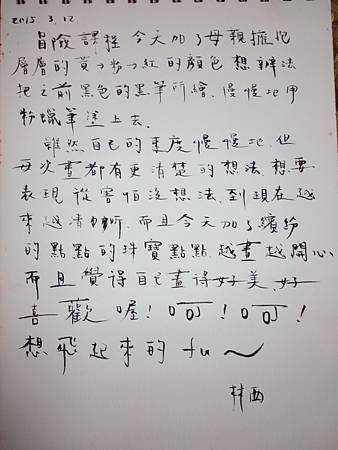 2015. 3. 12.
冒險課程 今天加了母親擁抱
層層的黃了粉了紅的顏色 想辦法
把之前黑色的黑筆所繪. 慢慢地用
粉蠟筆塗上去.
雖然自己的速度慢慢地. 但
每次畫都有更清楚的想法. 想要
表現 從害怕沒想法. 到現在越
來越清晰. 而且今天加了繽紛
的點點的珠寶點點 越畫越開心
而且覺得自己畫得好美 好
喜歡喔! 呵! 呵!
想飛起來的 fu～
林西